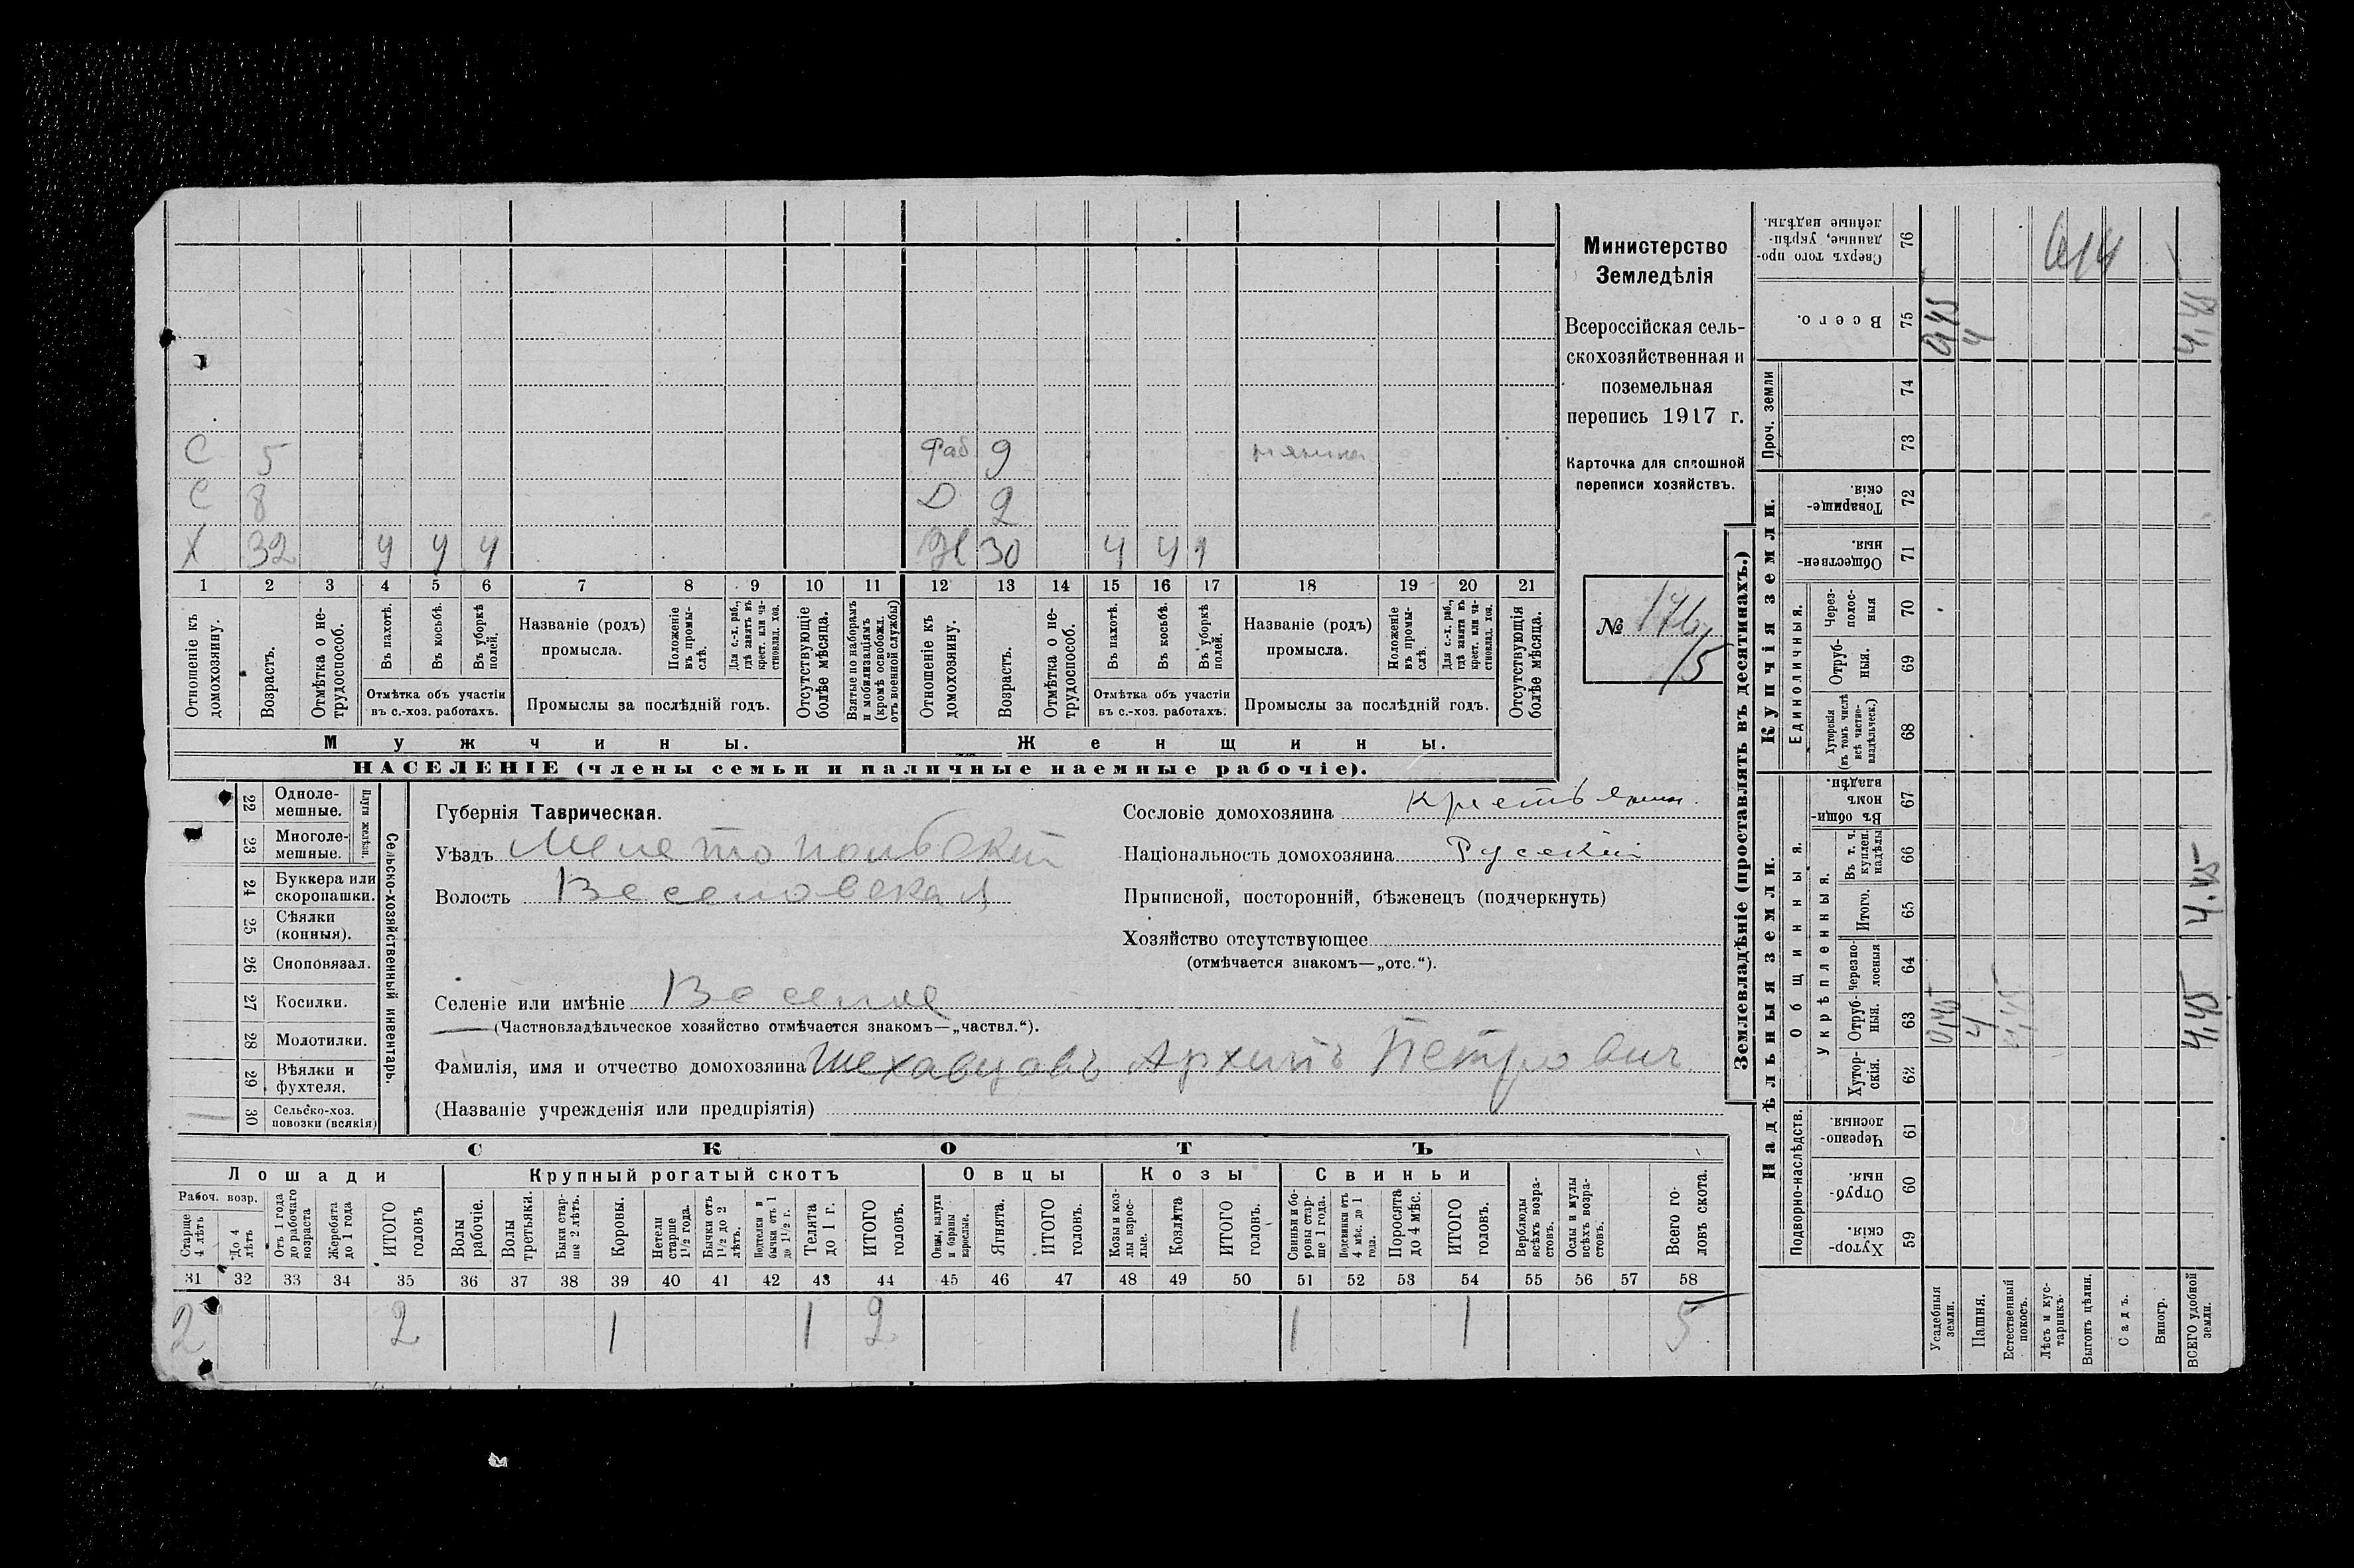 С 5 Раб 9
С 8 Д 2
Х 32 у у у Ж 30 у у
1 2 3 4 5 6 7 8 9 10 11 12 13 14 15 16 17 18 19 20 21
Отношеніе къ домохозяину.
Возрастъ.
Отмѣтка о нетрудоспособ.
Въ пахотѣ.
Въ косьбѣ.
Въ уборкѣ полей.
Отмѣтка объ участіи
въ с.-хоз. работахъ.
Названіе (родъ)
промысла.
Положеніе въ промыслѣ.
Для с.-х. раб., гдѣ занятъ въ крест. или частновлад. хоз.
Промыслы за послѣдній годъ.
Отсутствующіе болѣе мѣсяца.
Взятые по наборамъ и мобилизаціямъ (кромѣ освобожд. отъ военной службы)
Отношеніе къ домохозяину.
Возрастъ.
Отмѣтка о нетрудоспособ.
Въ пахотѣ.
Въ косьбѣ.
Въ уборкѣ полей.
Отмѣтка объ участіи
въ с.-хоз. работахъ.
Названіе (родъ)
промысла.
Положеніе въ промыслѣ.
Для с.-х. раб., гдѣ занята въ крест. или частновлад. хоз.
Промыслы за послѣдній годъ.
Отсутствующія болѣе мѣсяца.
Мужчины. Женщины.
НАСЕЛЕНІЕ (члены семьи и наличные наемные рабочіе).
Министерство
Земледѣлія
Всероссійская сель-
скохозяйственная и
поземельная
перепись 1917 г.
Карточка для сплошной
переписи хозяйствъ.
№ 176/5
Сельско-хозяйственный инвентарь.
Плуги желѣзн.
22 Одноле-
мешные.
23 Многоле-
мешные.
24 Буккера или
скоропашки.
25 Сѣялки
(конныя).
26 Сноповязал.
27 Косилки.
28 Молотилки.
29 Вѣялки и
фухтеля.
30 Сельско-хоз.
повозки (всякія)
Губернія Таврическая.
Уѣздъ Мелетопольскій
Волость Веселовская
Селеніе или имѣніе Веселое
(Частновладѣльческое хозяйство отмѣчается знакомъ—„частвл.“).
Фамилія, имя и отчество домохозяина Шехавцовъ Архипъ Петрович
(Названіе учрежденія или предпріятія)
Сословіе домохозяина крестьянин.
Національность домохозяина Русскій
Приписной, посторонній, бѣженецъ (подчеркнуть)
Хозяйство отсутствующее
(отмѣчается знакомъ—„отс.“).
СКОТЪ
Лошади Крупный рогатый скотъ Овцы Козы Свиньи
Рабоч. возр.
Старше 4 лѣтъ
До 4 лѣтъ
Отъ 1 года до рабочаго возраста
Жеребята до 1 года
ИТОГО головъ
Волы рабочіе.
Волы третьяки.
Быки старше 2 лѣтъ.
Коровы.
Нетели старше 1½ года.
Бычки отъ 1½ до 2 лѣтъ.
Подтелки и бычки отъ 1 до 1½ г.
Телята до 1 г.
ИТОГО головъ.
Овцы, валухи и бараны взрослые.
Ягнята.
ИТОГО головъ.
Козы и козлы взрослые.
Козлята
ИТОГО головъ.
Свиньи и боровы старше 1 года.
Подсвинки отъ 4 мѣс. до 1 года.
Поросята до 4 мѣс.
ИТОГО головъ.
Верблюды всѣхъ возрастовъ.
Ослы и мулы всѣхъ возрастовъ.
Всего головъ скота.
31 32 33 34 35 36 37 38 39 40 41 42 43 44 45 46 47 48 49 50 51 52 53 54 55 56 57 58
2 2 1 1 2 1 1 5
Землевладѣніе (проставлять въ десятинахъ.)
Надѣльныя земли.
Купчія земли.
Проч. земли
Подворно-наслѣдств.
Общинныя.
Укрѣпленныя.
Единоличныя.
Хуторскія. 59
Отрубныя. 60
Черезполосныя 61
Хуторскія. 62
Отрубныя. 63
Черезполосныя 64
Итого. 65
Въ т. ч. куплен. надѣлы 66
Въ общинномъ владѣн. 67
Хуторскія (въ томъ числѣ всѣ частновладѣльческ.) 68
Отрубныя. 69
Черезполосныя 70
Общественныя. 71
Товарищескія. 72
73
74
Всего. 75
Сверхъ того проданные, укрѣпленные надѣлы. 76
Усадебныя земли. 0,45 0,45
Пашня. 4 4
Естественный покосъ. 4,45
Лѣсъ и кустарникъ.
Выгонъ цѣлин.
Садъ.
Виногр.
ВСЕГО удобной земли. 4,45 4.45 4,45
614